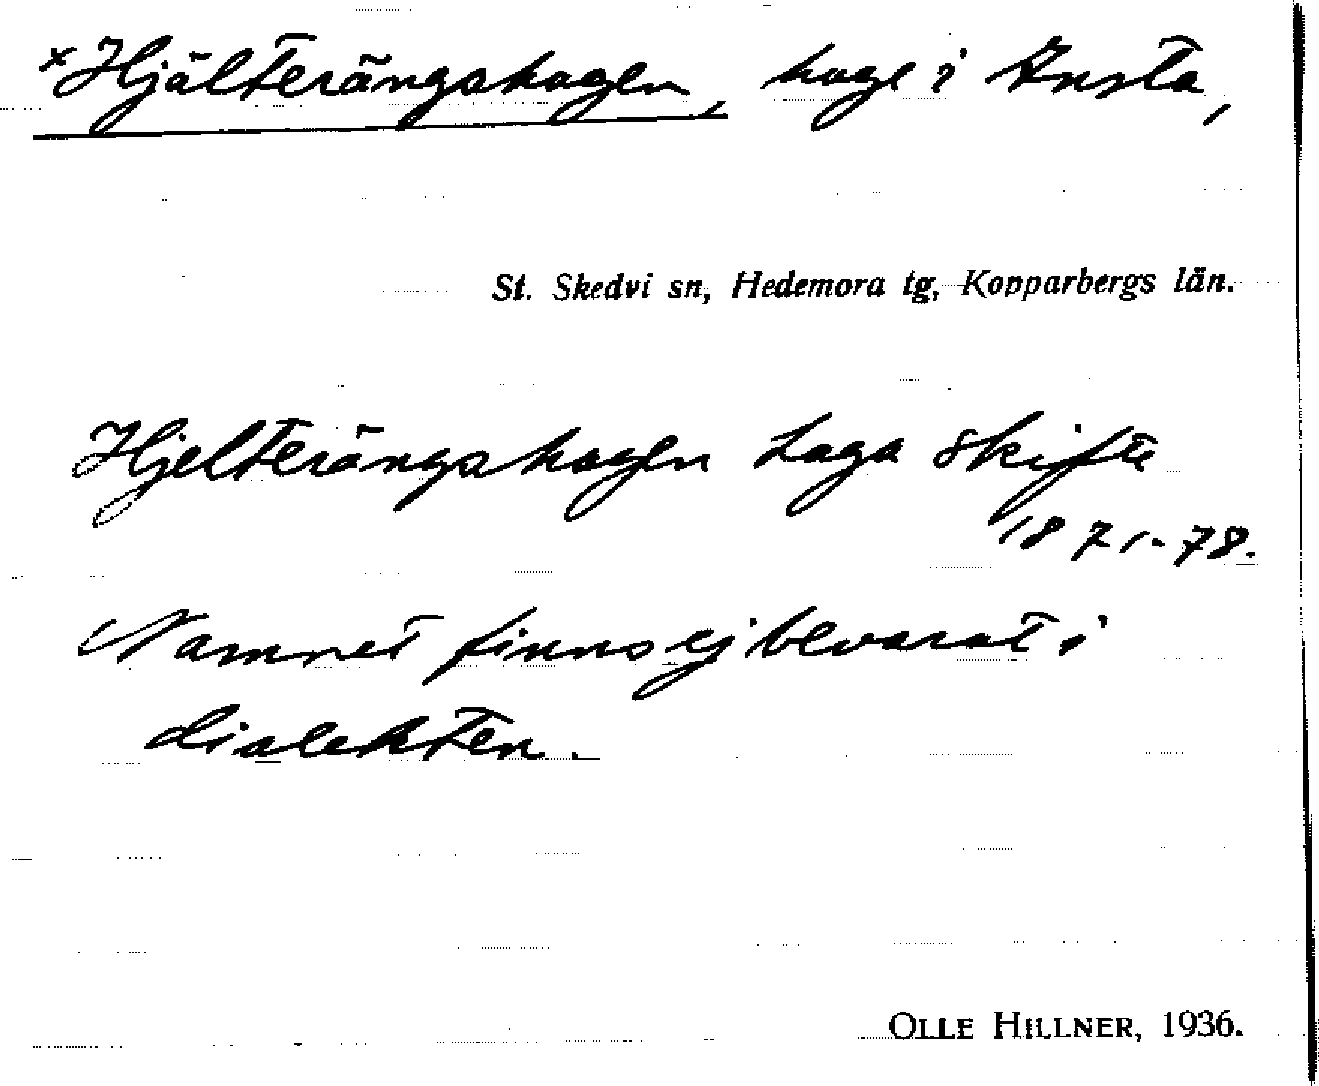 x Hjälterängshagen, hage i Knsta,
St. Skedvi sn, Hedemora tg, Kopparbergs län.
Hjelterängshagen Laga skifte
1871-78.
Namnet finns ej bevarat i
dialekten.
OLLE HILLNER, 1936.